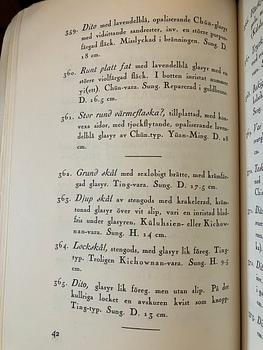 359. Dito med lavendelblå, opaliserande Chün-glasyr
med vidsittande sandrester, inv. en större purpur-
färgad fläck. Misslyckad i bränningen. Sung. D.
18 cm.
360. Runt platt fat med lavendelblå glasyr med en
större violfärgad fläck. I botten inristat
yi(ett). Chün-vara. Sung. Reparerad i guldbronn.
D. 16.5 cm.
361. Stor rund värmeflaska?, tillplattad, med kon-
vexa sidor, med tjockflytande, opaliserande lavend-
blå glasyr av Chün-typ. Yüan-Ming. D. 28
cm.
362. Grund skål med sexlobigt brätte, med krämfär-
gad glasyr. Ting-vara. Sung. D. 17.5 cm.
363. Djup skål av stengods med krakelerad, kräm-
tonad glasyr över vit slip, vari en inristad blad-
fris under glasyren, Küluhsien- eller Kichow-
nan-vara. Sung. H. 14 cm.
364. Lockskål, stengods, med glasyr lik föreg. Ting-
typ. Troligen Kichownan-vara. Sung. H. 9.5
cm.
365. Dito, glasyr lik föreg. men utan slip. På det
kullriga locket en avskuren kvist som knopp.
Ting-typ. Sung. D. 13 cm.
42